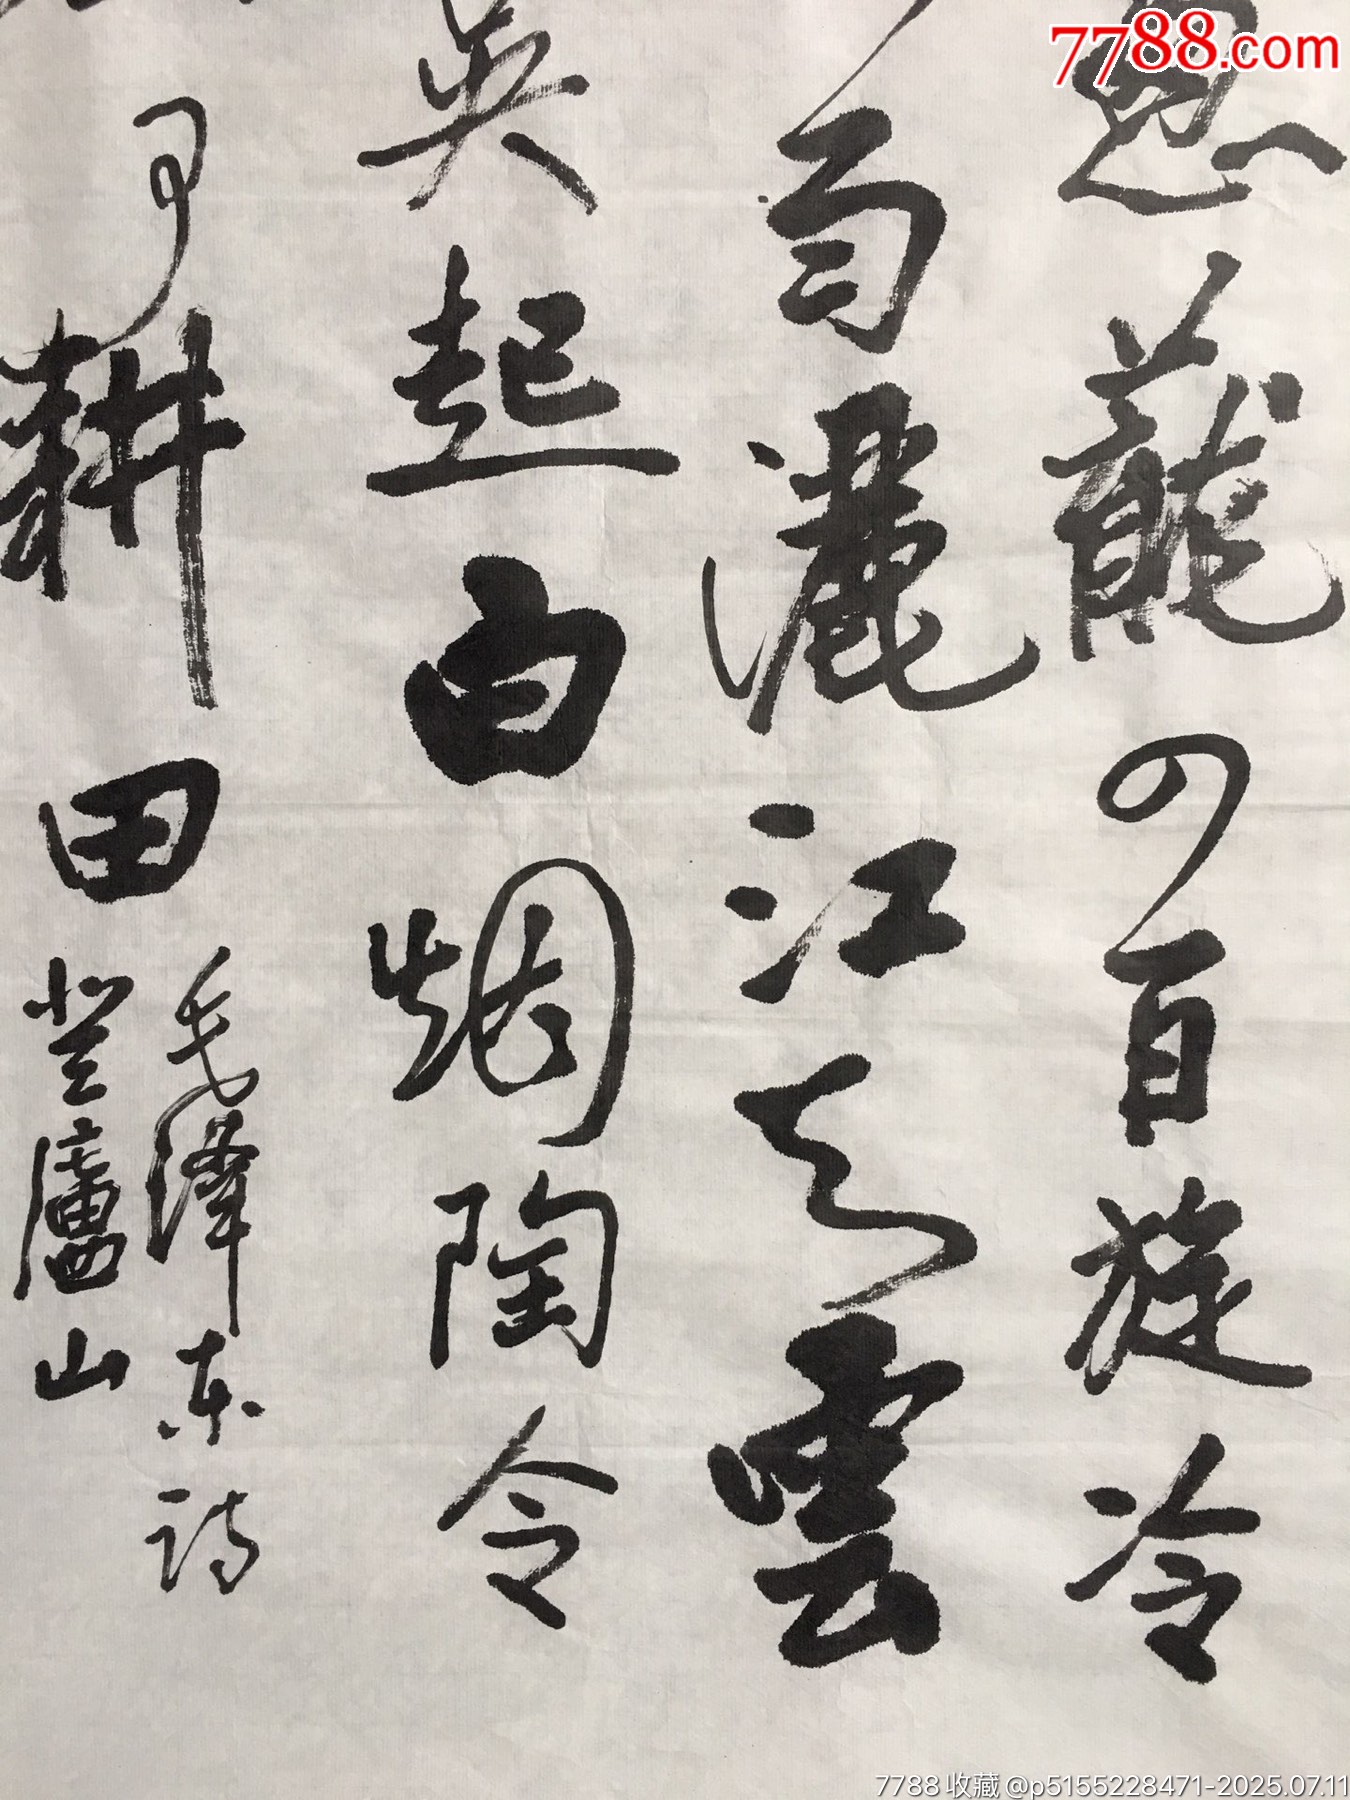 7788.com
葱蘢四百旋冷
雨灑江天雲
吴起白烟陶令
可耕田
毛澤东诗
登廬山
7788 收藏 @p5155228471-2025.07.11